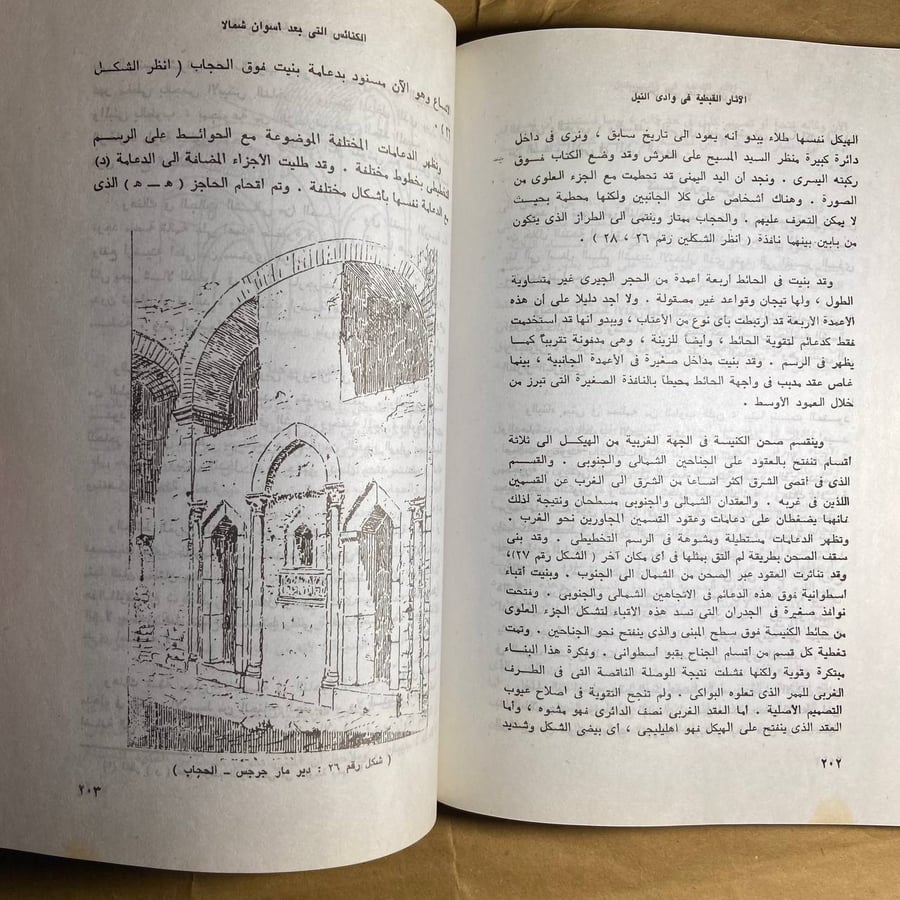 الآثار القبطية فى وادى النيل
الهيكل نفسها طلاء يبدو أنه يعود الى تاريخ سابق ، ونرى فى داخل
دائرة كبيرة منظر السيد المسيح على العرش وقد وضع الكتاب فوق
ركبته اليسرى . ونجد ان اليد اليمنى قد تحطمت مع الجزء العلوى من
الصورة . وهناك أشخاص على كلا الجانبين ولكنها محطمة بحيث
لا يمكن التعرف عليهم . والحجاب ممتاز وينتمى الى الطراز الذى يتكون
من بابين بينهما نافذة ( أنظر الشكلين رقم ٢٦ ، ٢٨ ) .
وقد بنيت فى الحائط أربعة أعمدة من الحجر الجيرى غير متساوية
الطول ، ولها تيجان وقواعد غير مصقولة . ولا أجد دليلا على أن هذه
الأعمدة الأربعة قد ارتبطت بأى نوع من الأعتاب ، ويبدو أنها قد استخدمت
فقط كدعائم لتقوية الحائط ، وأيضاً للزينة ، وهى مدفونة تقريباً كما
يظهر فى الرسم . وقد بنيت مداخل صغيرة فى الأعمدة الجانبية ، بينما
غاص عقد مدبب فى واجهة الحائط محيطاً بالنافذة الصغيرة التى تبرز من
خلال العمود الأوسط .
وينقسم صحن الكنيسة فى الجهة الغربية من الهيكل الى ثلاثة
أقسام تنفتح بالعقود على الجناحين الشمالى والجنوبى . والقسم
الذى فى أقصى الشرق أكثر اتساعاً من الشرق الى الغرب عن القسمين
اللذين فى غربه . والعقدان الشمالى والجنوبى مسطحان ونتيجة لذلك
فانهما يضغطان على دعامات وعقود القسمين المجاورين نحو الغرب .
وتظهر الدعامات مستطيلة ومشوهة فى الرسم التخطيطى . وقد بنى
سقف الصحن بطريقة لم ألتق بمثلها فى أى مكان آخر ( الشكل رقم ٢٧)،
وقد تناثرت العقود عبر الصحن من الشمال الى الجنوب . وبنيت أقباء
اسطوانية فوق هذه الدعائم فى الاتجاهين الشمالى والجنوبى . وفتحت
نوافذ صغيرة فى الجدران التى تسد هذه الأقباء لتشكل الجزء العلوى
من حائط الكنيسة فوق سطح المبنى والذى ينفتح نحو الجناحين . وتمت
تغطية كل قسم من أقسام الجناح بقبو اسطوانى . وفكرة هذا البناء
مبتكرة وقوية ولكنها فشلت نتيجة للوصلة الناقصة التى فى الطرف
الغربى للممر الذى تعلوه البواكى . ولم تنجح التقوية فى اصلاح عيوب
التصميم الأصلية . أما العقد الغربى نصف الدائرى فهو مشوه ، وأما
العقد الذى ينفتح على الهيكل فهو اهليليجى ، أى بيضى الشكل وشديد
٢٠٢
الكنائس التى بعد أسوان شمالا
اتساع وهو الآن مسنود بدعامة بنيت فوق الحجاب ( انظر الشكل
٢٦ ) .
وتظهر الدعامات المختلفة الموضوعة مع الحوائط على الرسم
التخطيطى بخطوط مختلفة . وقد طليت الأجزاء المضافة الى الدعامة (د)
مع الدعامة نفسها بأشكال مختلفة . وتم اقحام الحاجز ( هـ ــ هـ ) الذى
( شكل رقم ٢٦ : دير مار جرجس ــ الحجاب )
٢٠٣